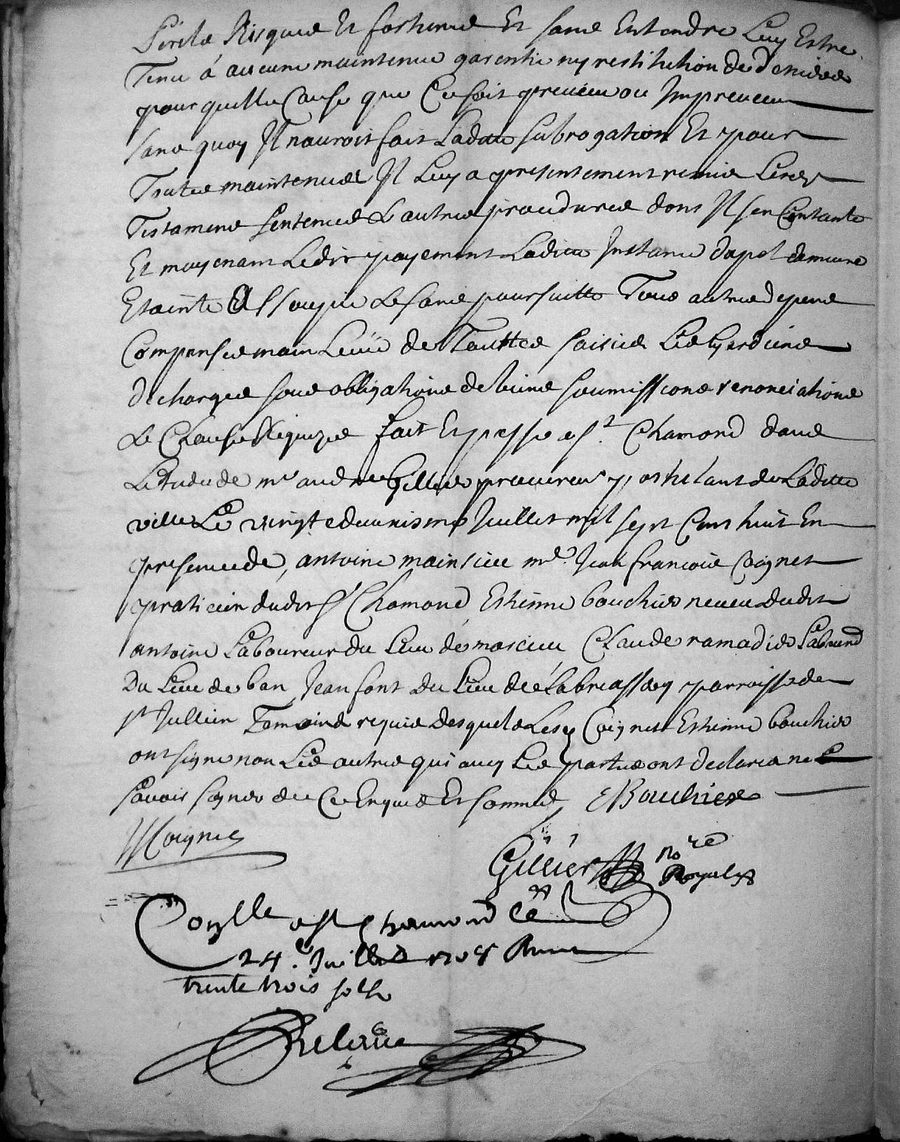 Perilz Risques Et fortunes Et sans Entendre Luy Estre
Tenu á aucune maintenue garentie ny restitution de deniers
pour quelle Cause que Ce soit preveue ou Impreveue
sans quoy Il nauroit fait Laditte subrogation Et pour
Toutes maintenues Il Luy a presentement remis Lesd
Testament sentences & autres procedures dont Il sen Contante
Et moyenant Ledit payement Laditte Instance dapel demeure
Etainte Assoupie & sans poursuitte Tous autres depens
Compensés main Levée de Touttes saisies Les Gardiens
dechargés sous obligations de biens soumissions renonciations
& Clauses Requizes fait Et passé a St. Chamond dans
Letude de me andre Gillier procureur postulant de Laditte
ville Le vingt deunieme Juillet mil sept Cent huit En
presence de, antoine mainsieu me. Jean francois Coignet
praticien dudit St Chamond Estienne bouchier neveu dudit
antoine Laboureur du Lieu de marcieu Claude ramadier Laboureur
Du Lieu de ban Jean font Du Lieu de Labriassey parroisse de
st Jullien Temoins requis desquels Lesd Coignet Estienne bouchier
ont signe non Les autres qui avec Les parties ont declaré ne
savoir signer de Ce Enquis Et sommés EBouchier
Coignet
Gillier nore
Royal
Conlle a St Chamond Ce
24e. Juillet 1708 Receu
trente trois sols